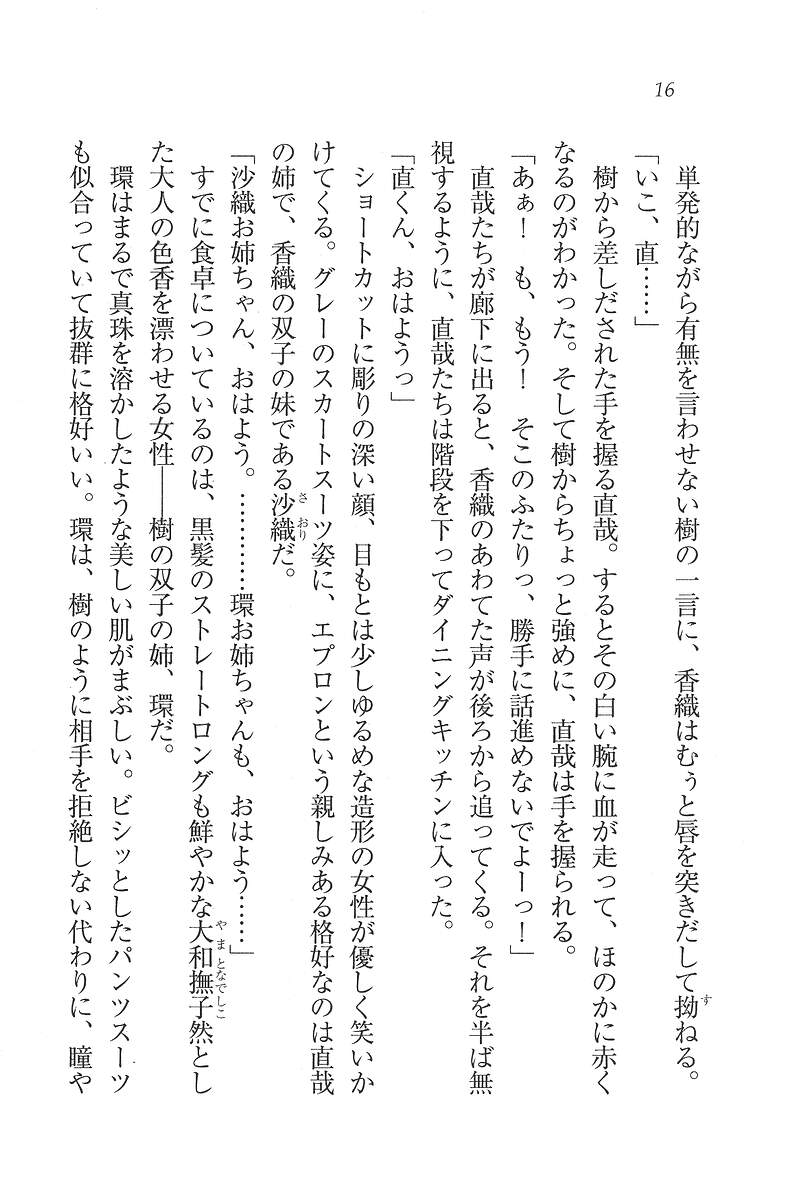 16
単発的ながら有無を言わせない樹の一言に、香織はむぅと唇を突きだして拗ねる。
「いこ、直……」
樹から差しだされた手を握る直哉。するとその白い腕に血が走って、ほのかに赤く
なるのがわかった。そして樹からちょっと強めに、直哉は手を握られる。
「あぁ！　も、もう！　そこのふたりっ、勝手に話進めないでよーっ！」
直哉たちが廊下に出ると、香織のあわてた声が後ろから追ってくる。それを半ば無
視するように、直哉たちは階段を下ってダイニングキッチンに入った。
「直くん、おはようっ」
ショートカットに彫りの深い顔、目もとは少しゆるめな造形の女性が優しく笑いか
けてくる。グレーのスカートスーツ姿に、エプロンという親しみある格好なのは直哉
の姉で、香織の双子の妹である沙織だ。
「沙織お姉ちゃん、おはよう。…………環お姉ちゃんも、おはよう……」
すでに食卓についているのは、黒髪のストレートロングも鮮やかな大和撫子然とし
た大人の色香を漂わせる女性――樹の双子の姉、環だ。
環はまるで真珠を溶かしたような美しい肌がまぶしい。ビシッとしたパンツスーツ
も似合っていて抜群に格好いい。環は、樹のように相手を拒絶しない代わりに、瞳や